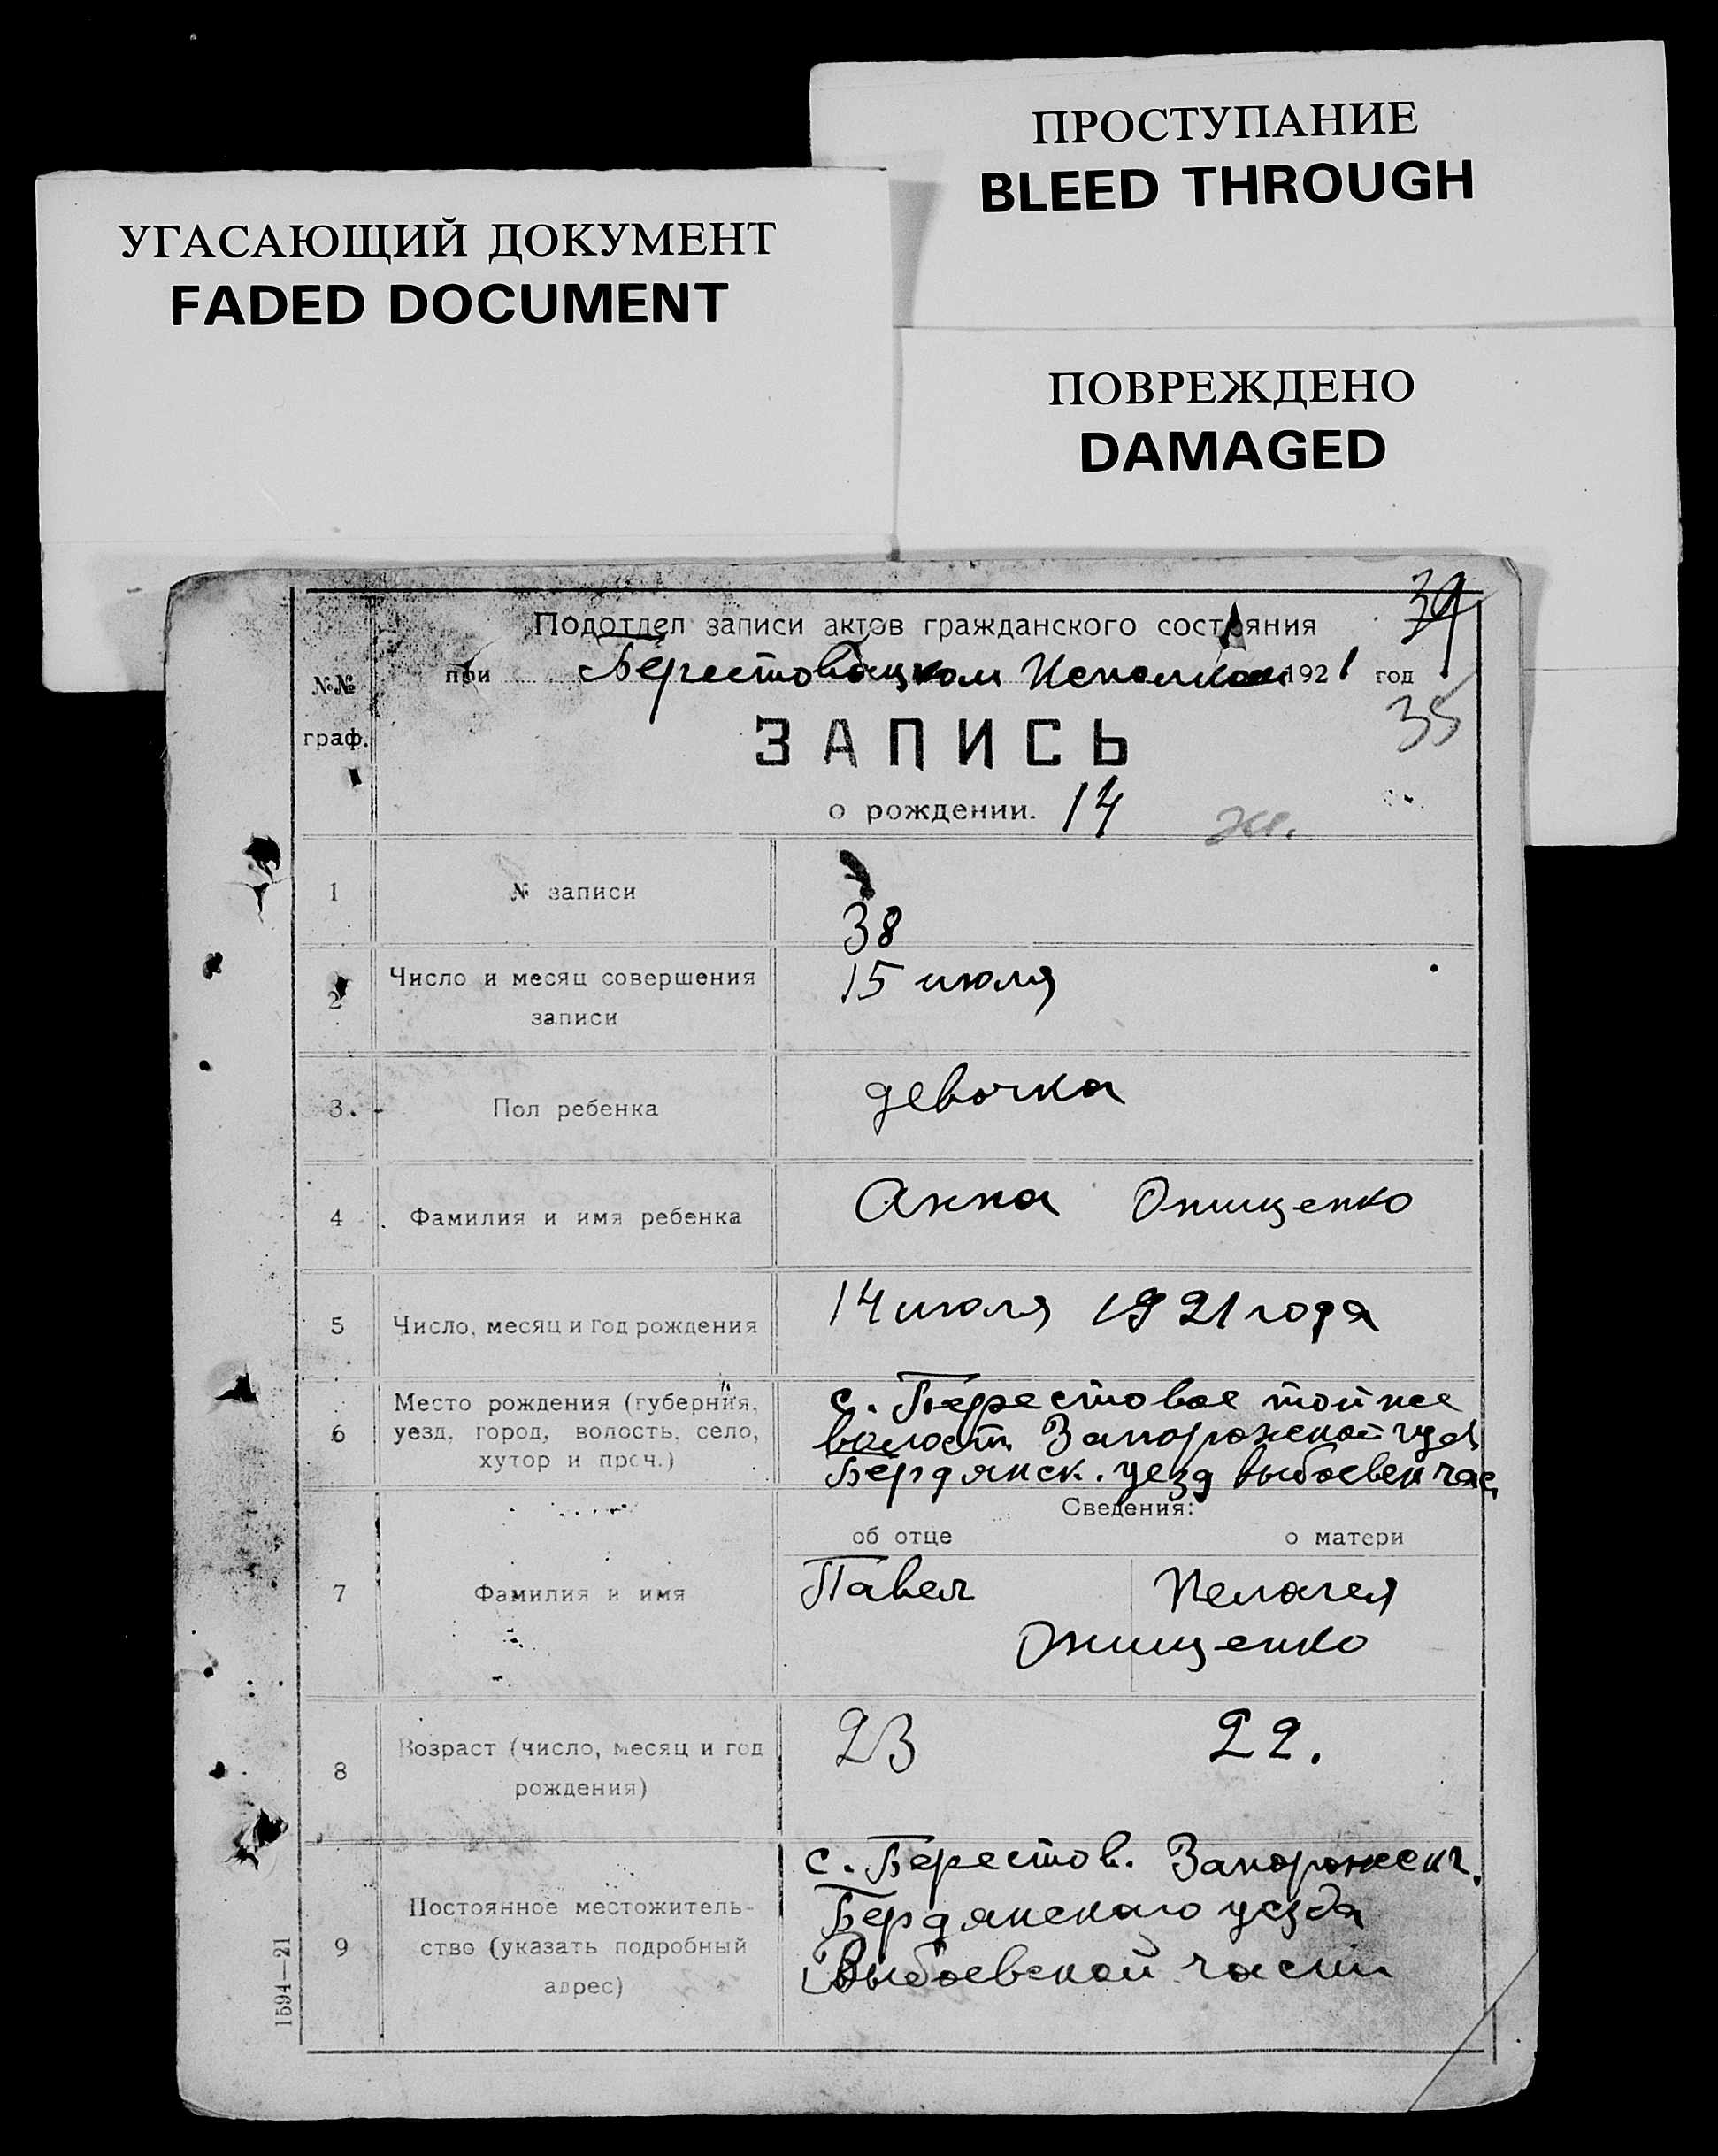 ПРОСТУПАНИЕ
BLEED THROUGH
УГАСАЮЩИЙ ДОКУМЕНТ
FADED DOCUMENT
ПОВРЕЖДЕНО
DAMAGED
39
Подотдел записи актов гражданского состояния
при Берестовецком Исполкоме 1921 год
35
№№ граф.
ЗАПИСЬ
о рождении. 14 ж.
1 № записи 38
2 Число и месяц совершения записи 15 июля
3. Пол ребенка девочка
4 Фамилия и имя ребенка Анна Онищенко
5 Число, месяц и год рождения 14 июля 1921 года
6 Место рождения (губерния, уезд, город, волость, село, хутор и проч.)
с. Берестовое той же
волости Запорожской губ
Бердянск. уезд
Сведения:
об отце о матери
7 Фамилия и имя Павел Пелагея
Онищенко
8 Возраст (число, месяц и год рождения) 23 22.
9 Постоянное местожительство (указать подробный адрес)
с. Берестов. Запорожск г.
Бердянского уезда
части
1594—21